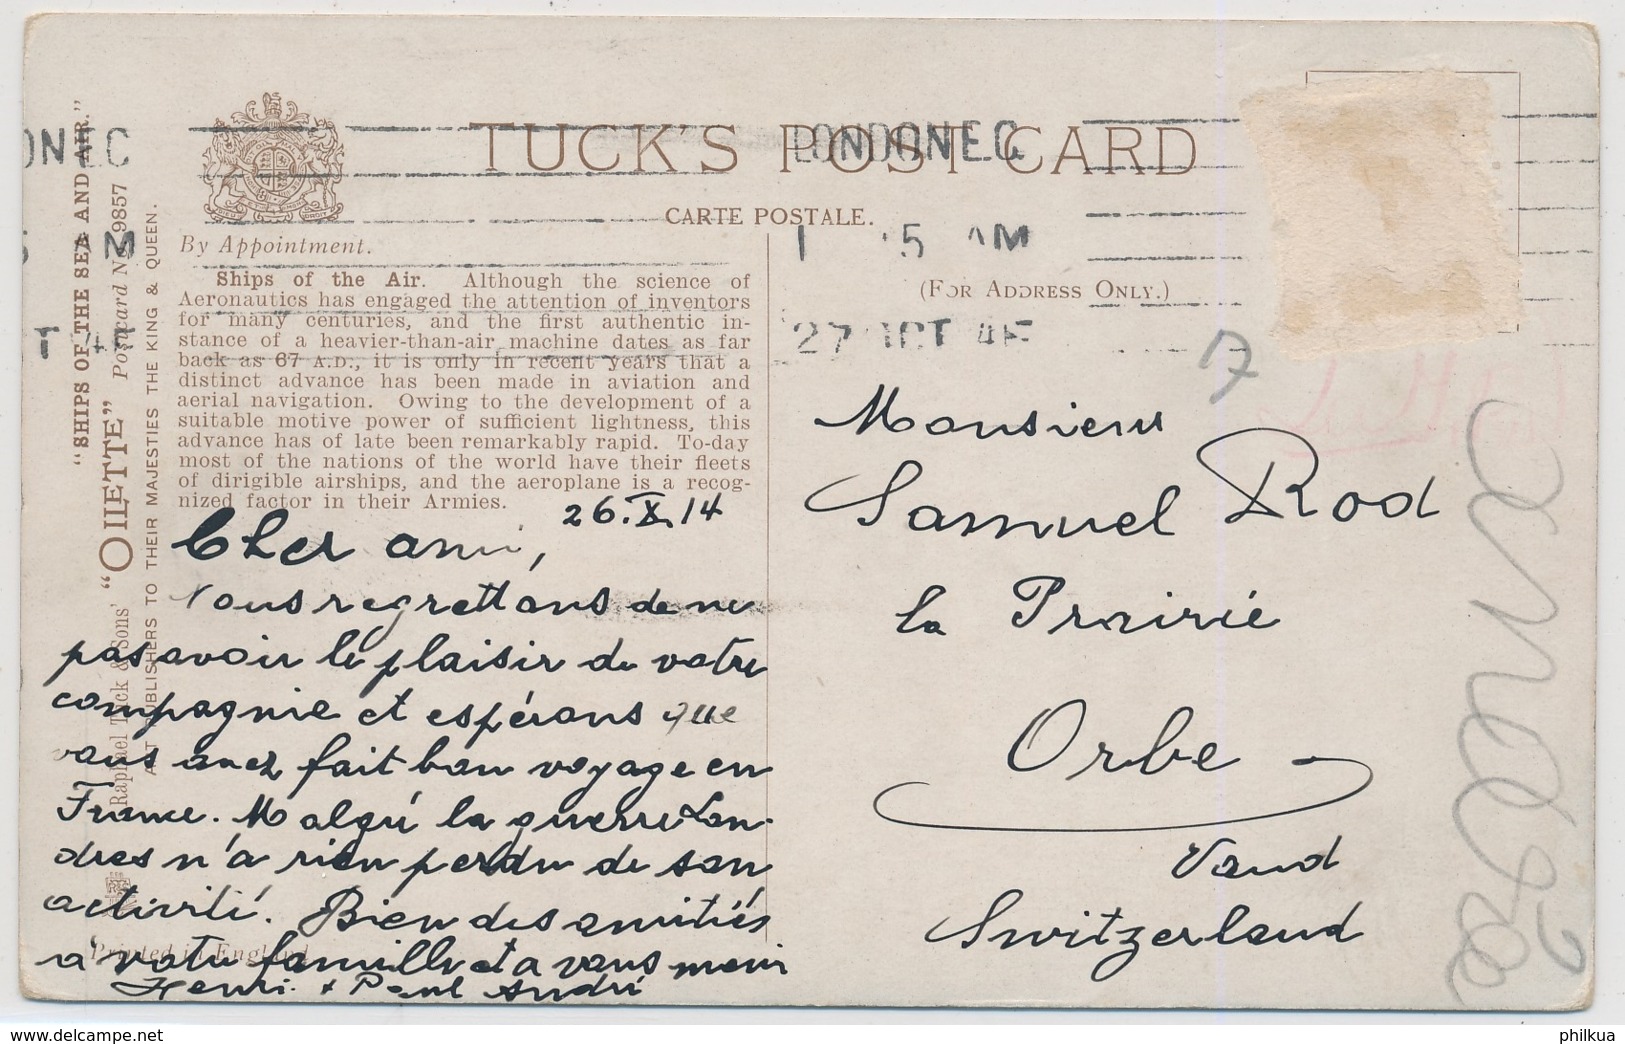 TUCK'S POST CARD
CARTE POSTALE.
LONDON E.C.
27 OCT
By Appointment.
(FOR ADDRESS ONLY.)
"SHIPS OF THE SEA AND AIR."
"OILETTE" Postcard No. 9857
Raphael Tuck & Sons'
ART PUBLISHERS TO THEIR MAJESTIES THE KING & QUEEN.
Ships of the Air. Although the science of
Aeronautics has engaged the attention of inventors
for many centuries, and the first authentic in-
stance of a heavier-than-air machine dates as far
back as 67 A.D., it is only in recent years that a
distinct advance has been made in aviation and
aerial navigation. Owing to the development of a
suitable motive power of sufficient lightness, this
advance has of late been remarkably rapid. To-day
most of the nations of the world have their fleets
of dirigible airships, and the aeroplane is a recog-
nized factor in their Armies.
26.X.14
Cher ami,
Nous regrettons de ne
pas avoir le plaisir de votre
compagnie et espérons que
vous avez fait bon voyage en
France. Malgré la guerre Lon-
dres n'a rien perdu de son
activité. Bien des amitiés
a votre famille et a vous meme
Henri & Paul André
Printed in England
Monsieur
Samuel Rod
la Prairie
Orbe
Vaud
Switzerland
delcampe.net
philkua